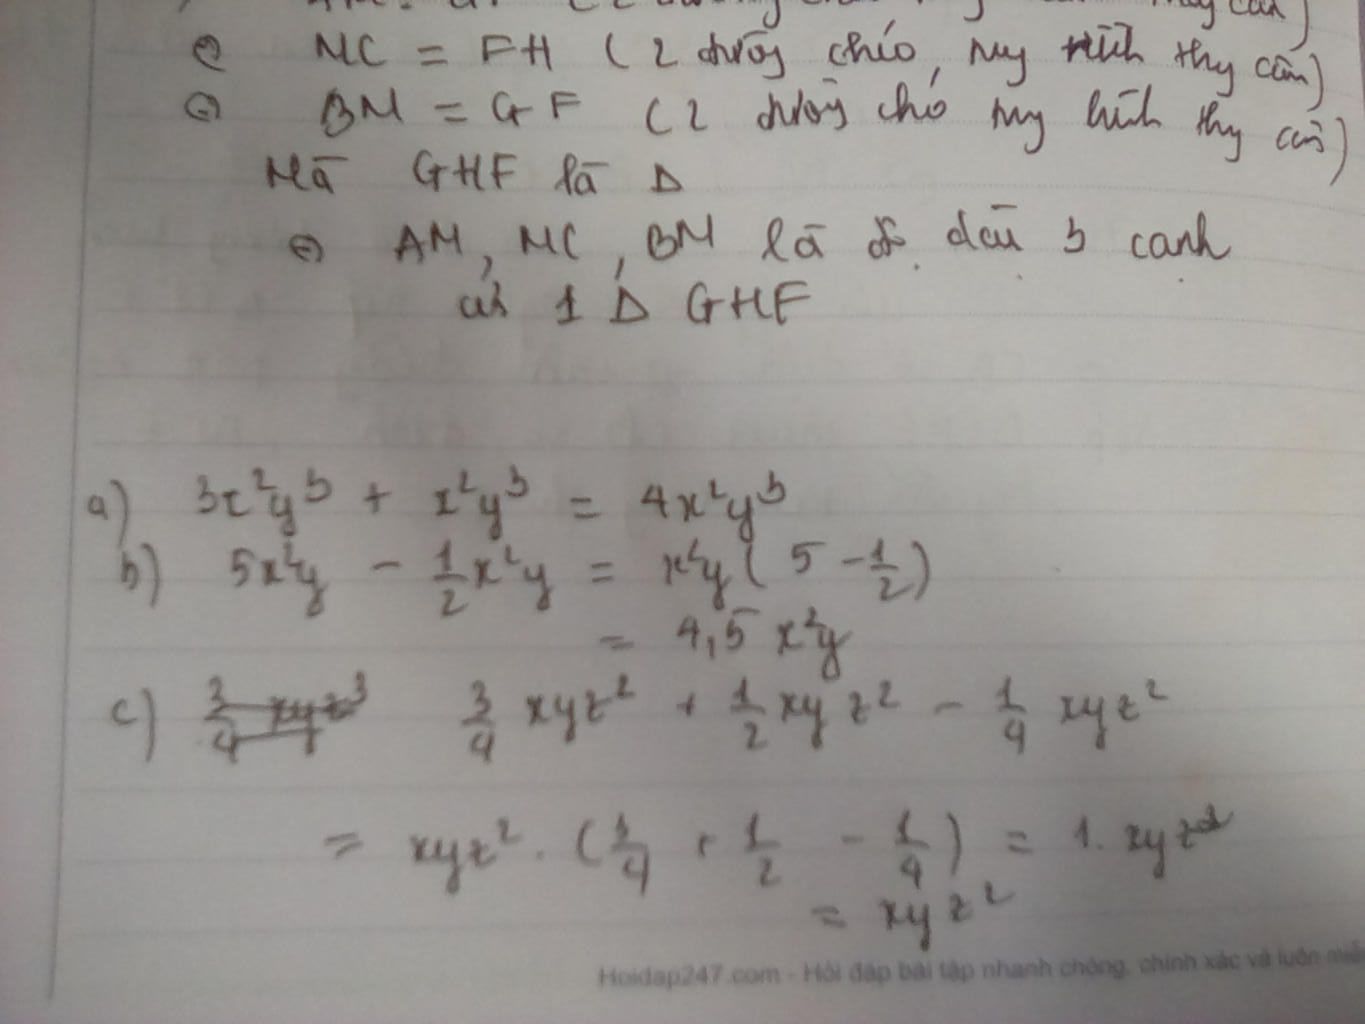 MC = FH ( 2 đường chéo, hình thg cân)
BM = GF ( 2 đường chéo hình thg cân)
Mà GHF là Δ
⇒ AM, MC, BM là độ dài 3 cạnh
của 1 Δ GHF
a) 3x²y³ + x²y³ = 4x²y³
b) 5x²y - 1/2 x²y = x²y ( 5 - 1/2 )
= 4,5 x²y
c) 3/4 xyz³ 3/4 xyz² + 1/2 xyz² - 1/4 xyz²
= xyz² . ( 3/4 + 1/2 - 1/4 ) = 1. xyz²
= xyz²
Hoidap247.com - Hỏi đáp bài tập nhanh chóng, chính xác và luôn miễn